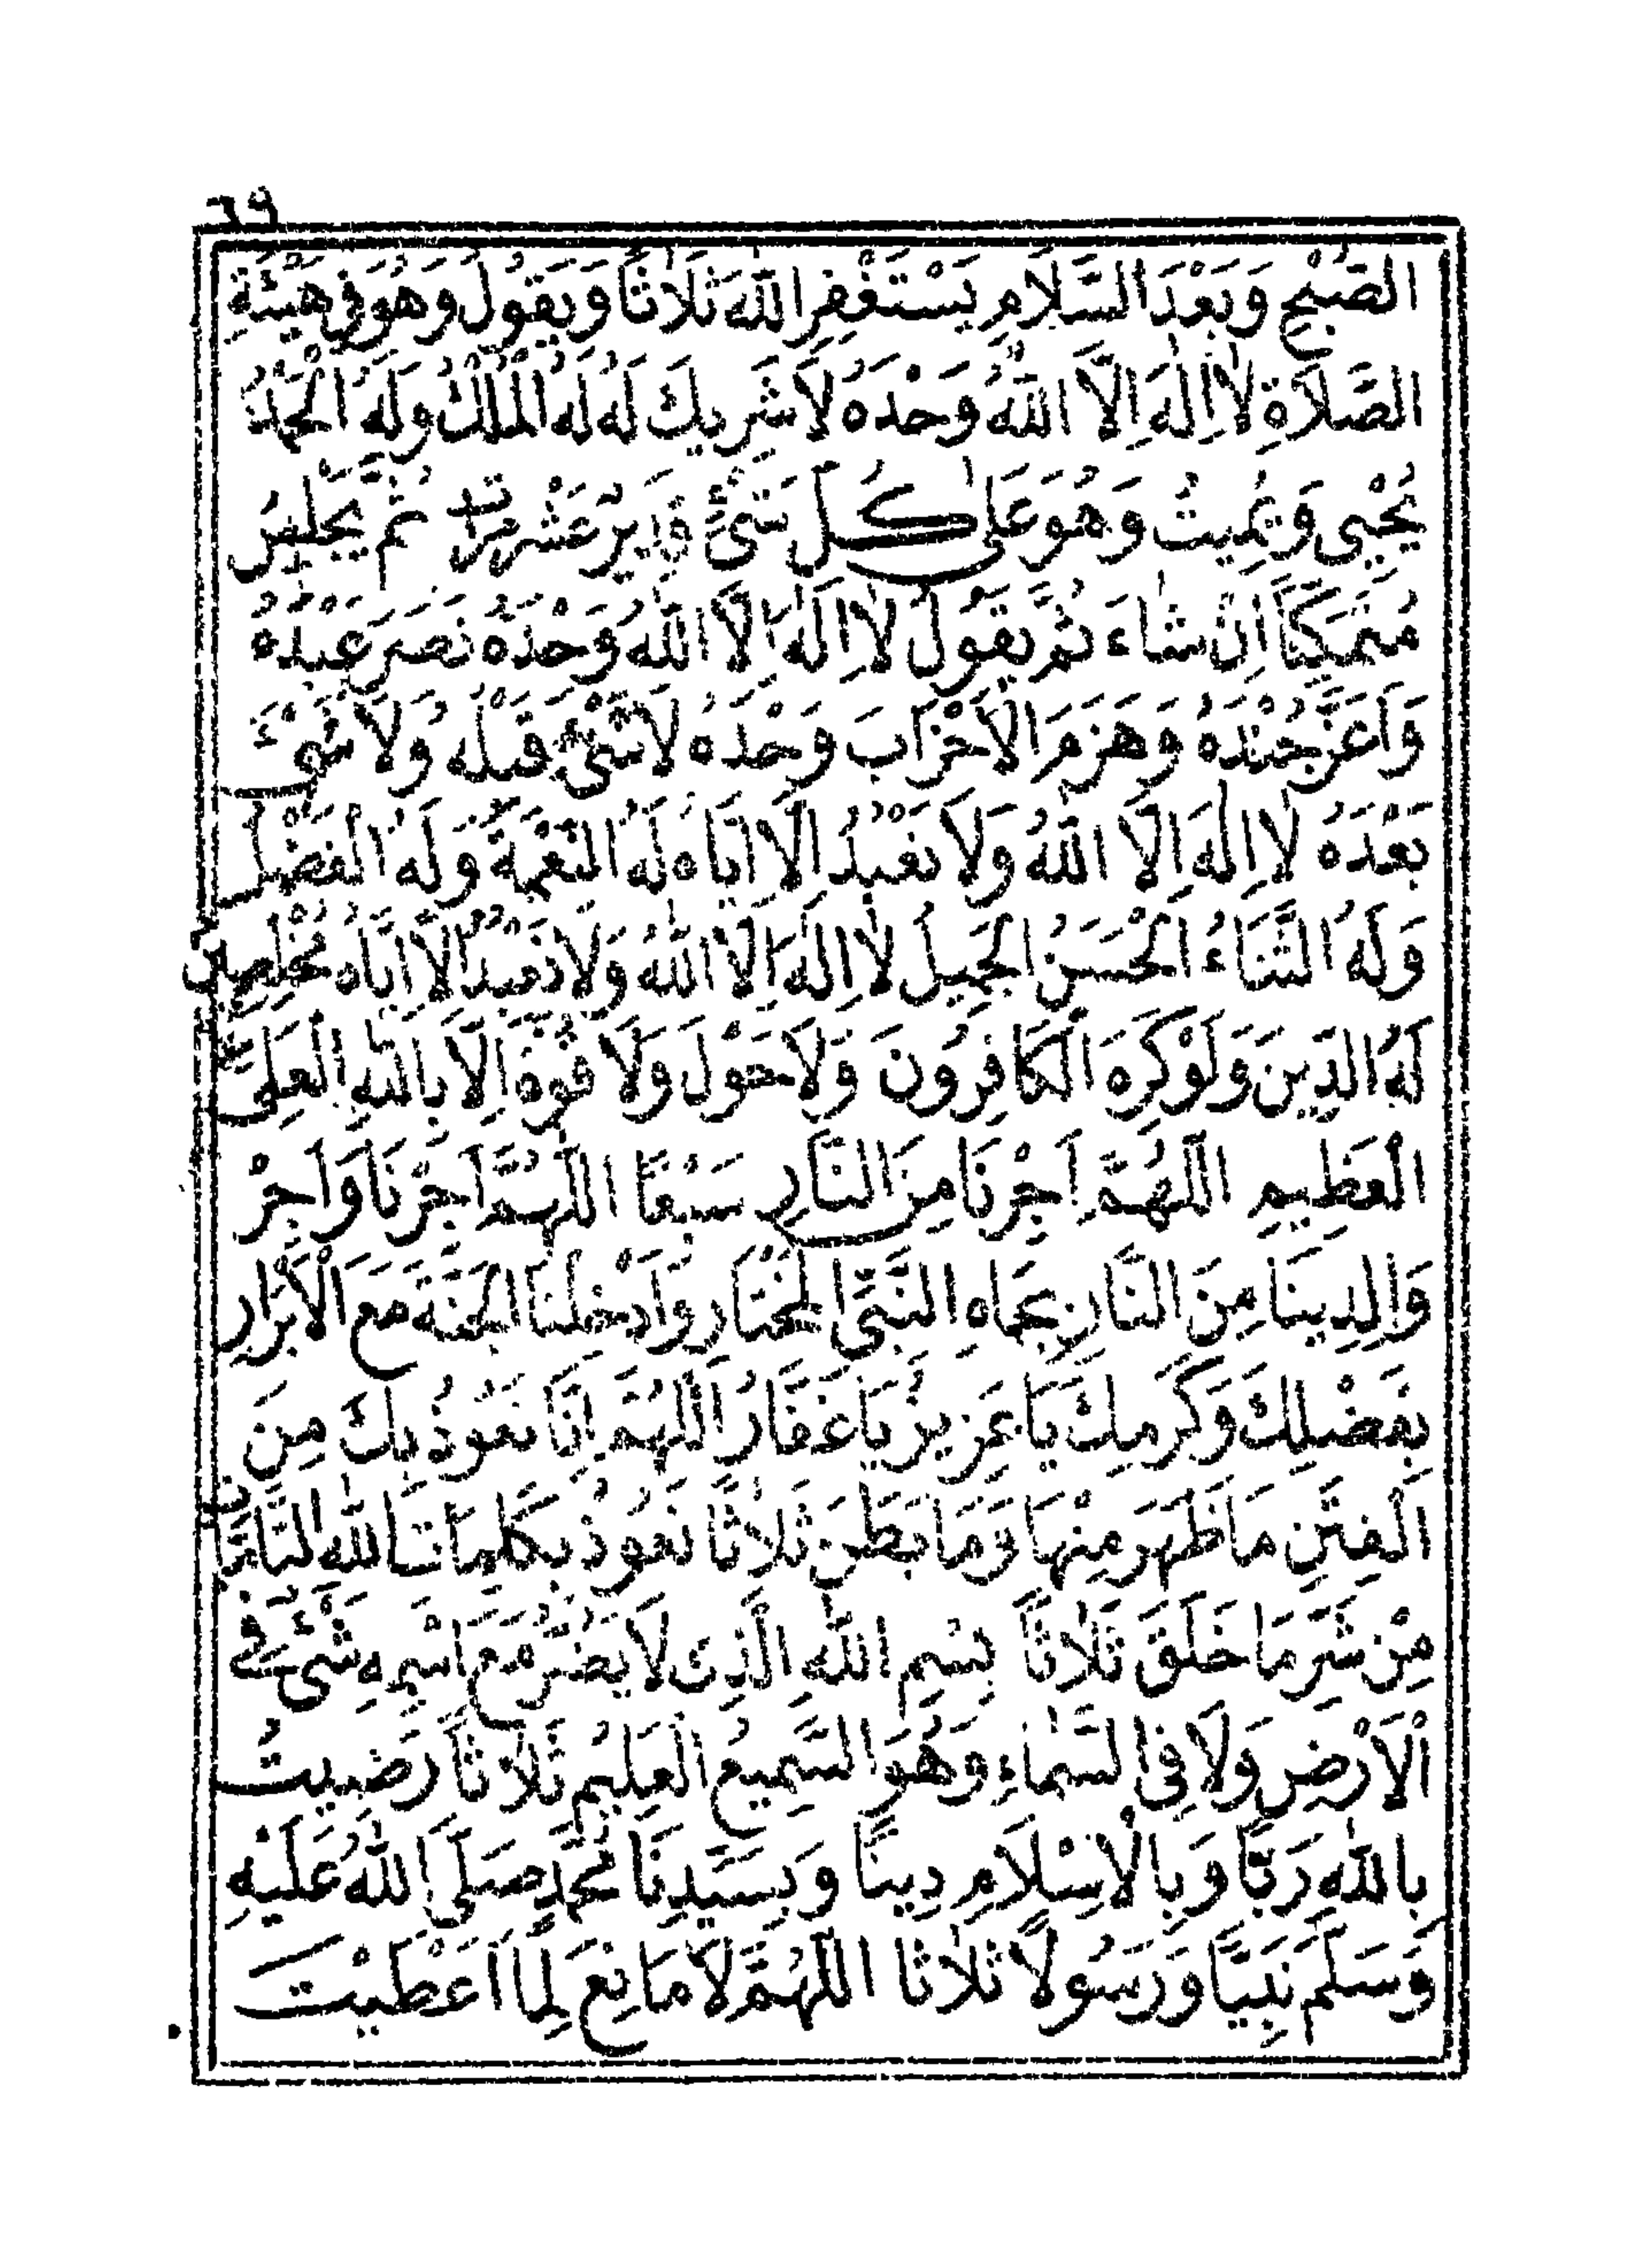 ٦٩
الصُّبْحِ وَبَعْدَ السَّلَامِ يَسْتَغْفِرِ اللّٰهَ ثَلَاثًا وَيَقُولُ وَهُوَ فِي هَيْئَةِ
الصَّلَاةِ لَا اِلٰهَ اِلَّا اللّٰهُ وَحْدَهُ لَا شَرِيكَ لَهُ لَهُ الْمُلْكُ وَلَهُ الْحَمْدُ
يُحْيِي وَيُمِيتُ وَهُوَ عَلٰى كُلِّ شَيْءٍ قَدِيرٌ عَشْرَ مَرَّاتٍ ثُمَّ يَجْلِسُ
مُتَمَكِّنًا اِنْ شَاءَ ثُمَّ يَقُولُ لَا اِلٰهَ اِلَّا اللّٰهُ وَحْدَهُ نَصَرَ عَبْدَهُ
وَاَعَزَّ جُنْدَهُ وَهَزَمَ الْاَحْزَابَ وَحْدَهُ لَا شَيْءَ قَبْلَهُ وَلَا شَيْءَ
بَعْدَهُ لَا اِلٰهَ اِلَّا اللّٰهُ وَلَا نَعْبُدُ اِلَّا اِيَّاهُ لَهُ النِّعْمَةُ وَلَهُ الْفَضْلُ
وَلَهُ الثَّنَاءُ الْحَسَنُ الْجَمِيلُ لَا اِلٰهَ اِلَّا اللّٰهُ وَلَا نَعْبُدُ اِلَّا اِيَّاهُ مُخْلِصِينَ
لَهُ الدِّينَ وَلَوْ كَرِهَ الْكَافِرُونَ وَلَا حَوْلَ وَلَا قُوَّةَ اِلَّا بِاللّٰهِ الْعَلِيِّ
الْعَظِيمِ اَللّٰهُمَّ اَجِرْنَا مِنَ النَّارِ سَبْعًا اَللّٰهُمَّ اَجِرْنَا وَاَجِرْ
وَالِدِينَا مِنَ النَّارِ بِجَاهِ النَّبِيِّ الْمُخْتَارِ وَاَدْخِلْنَا الْجَنَّةَ مَعَ الْاَبْرَارِ
بِفَضْلِكَ وَكَرَمِكَ يَا عَزِيزُ يَا غَفَّارُ اَللّٰهُمَّ اِنَّا نَعُوذُ بِكَ مِنَ
الْفِتَنِ مَا ظَهَرَ مِنْهَا وَمَا بَطَنَ ثَلَاثًا نَعُوذُ بِكَلِمَاتِ اللّٰهِ التَّامَّاتِ
مِنْ شَرِّ مَا خَلَقَ ثَلَاثًا بِسْمِ اللّٰهِ الَّذِي لَا يَضُرُّ مَعَ اسْمِهِ شَيْءٌ فِي
الْاَرْضِ وَلَا فِي السَّمَاءِ وَهُوَ السَّمِيعُ الْعَلِيْمُ ثَلَاثًا رَضِيتُ
بِاللّٰهِ رَبًّا وَبِالْاِسْلَامِ دِينًا وَبِسَيِّدِنَا مُحَمَّدٍ صَلَّى اللّٰهُ عَلَيْهِ
وَسَلَّمَ نَبِيًّا وَرَسُولًا ثَلَاثًا اَللّٰهُمَّ لَا مَانِعَ لِمَا اَعْطَيْتَ